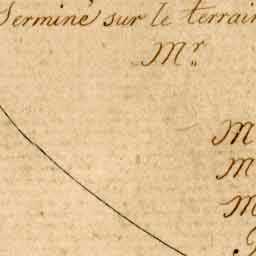 Terminé sur le terrain
Mr
M
M
M